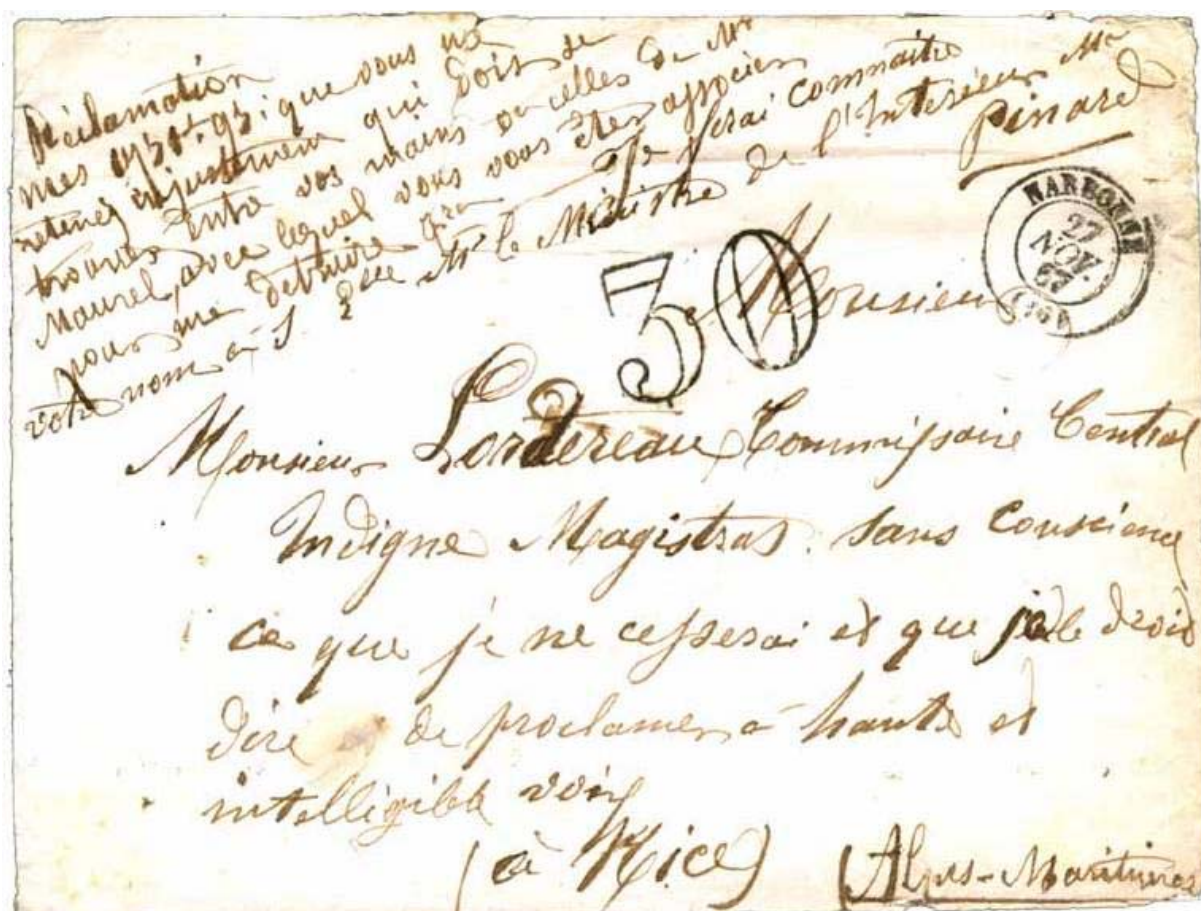 Réclamation
mes 931f. 95: que vous me
retenez injustement qui dois se
trouver entre vos mains ou celles de Mr
Maurel, avec lequel vous vous êtes associer
pour me détruire Je ferai connaître
votre nom à S. Ece Mr le Ministre de l'Intérieur Mr
Pinard
NARBONNE
27
NOV.
67
30
Monsieur
Monsieur Lordereau Commissaire Central
Indigne Magistrat. sans conscience
ce que je ne cesserai et que j'ai le droit
dire et de proclamer à haute et
intelligible voix
(à Nice) (Alpes-Maritimes